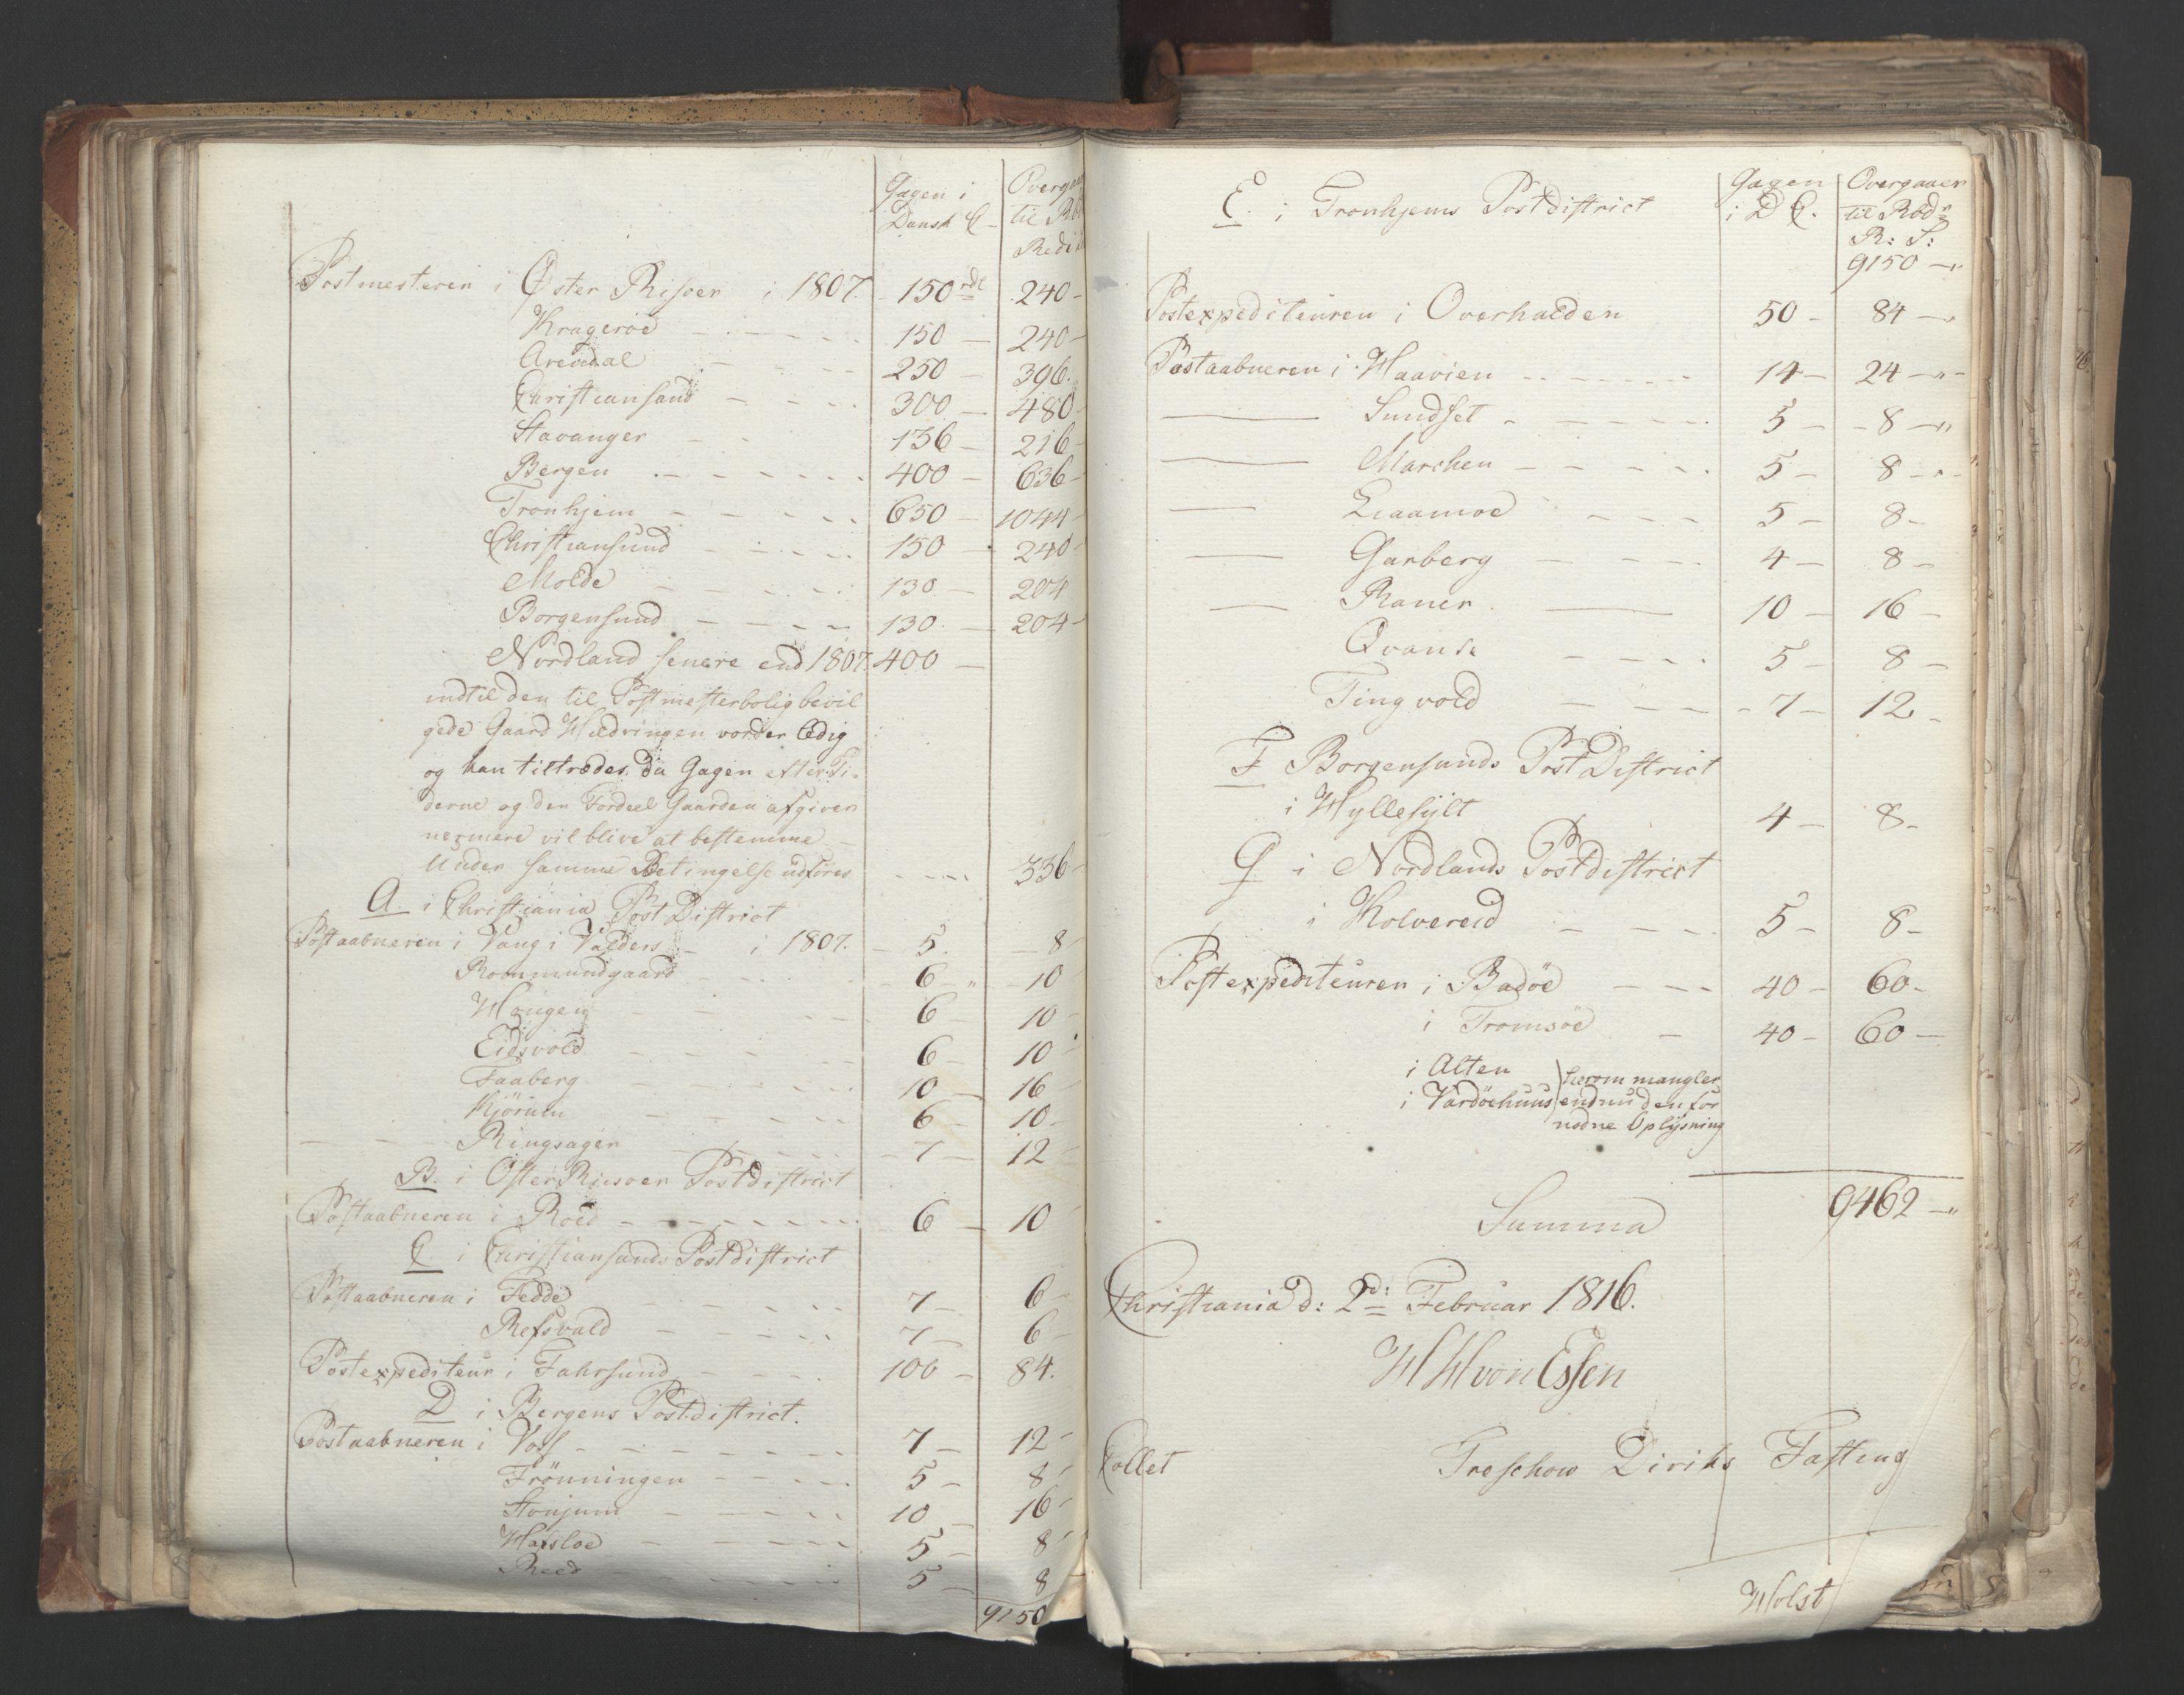 Gagen i Overgaaer
Dansk C til Rbd
Redu
Postmesteren i Øster Risøer i 1807. 150 rdl 240
Kragerøe 150 240
Arendal 250 396
Christiansand 300 480
Stavanger 136 216
Bergen 400 636
Tronhjem 650 1044
Christiansund 150 240
Molde 130 204
Borgensund 130 204
Nordland senere end 1807. 400
indtil den til Postmesterbolig bevil
gede Gaard Hædringen vorder ledig
og han tiltræder, da Gagen efter Ti-
derne og den Fordeel Gaarden afgiver
nærmere vil blive at bestemme
Under samme Betingelse udføres 336
A. i Christiania Post District
Postaabneren i Vang i Valders i 1807. 5. 8
Roommundgaard 6 10
Haugen 6 10
Eidsvold 6 10
Faaberg 10 16
Kjørum 6 10
Ringsager 7 12
B. i Øster Riisøer Postdistrict
Postaabneren i Roed 6 10
C. i Christiansands Postdistrict
Postaabneren i Fedde 7 6
Refsvald 7 6
Postexpediteur i Fahrsund 100 84.
D i Bergens Postdistrict.
Postaabneren i Voss 7 12
Frønningen 5 8
Stonjum 10 16
Hafsloe 5 8
Reed 5 8
9150
E. i Tronhjems Postdistrict Gagen Overgaaer
i D C. til Rbdr
R: S:
9150
Postexpediteuren i Overhalden 50 84
Postaabneren i Haavien 14 24
Sundset 5 8
Marchen 5 8
Liaamoe 5 8
Garberg 4 8
Raner 10 16
Qvande 5 8
Tingvold 7 12
F Borgensunds Post District
i Hyllesylt 4 8
G i Nordlands Postdistrict
i Kolvereid 5 8
Postexpediteuren i Bodöe 40 60
i Tromsöe 40 60
i Alten herom mangler
i Vardöehuus endnu den for
nødne Oplysning
Summa 9462
Christiania d: 2d: Februar 1816.
H H von Essen
Collet Treschow Diriks Fasting
Holst